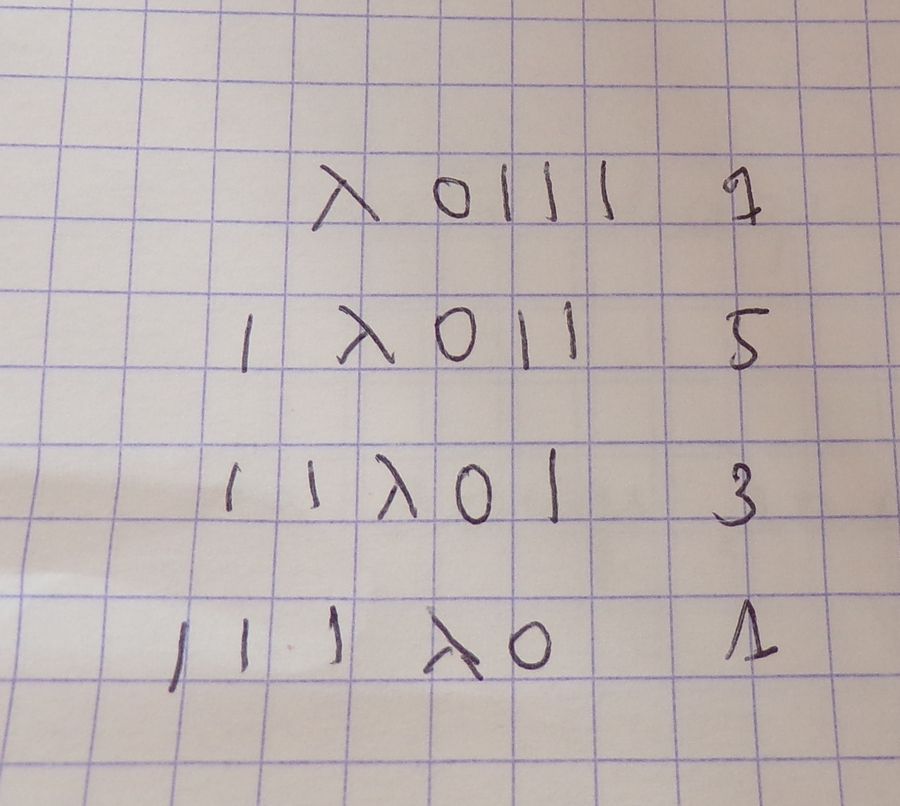 λ 0 1 1 1 7
1 λ 0 1 1 5
1 1 λ 0 1 3
1 1 1 λ 0 1